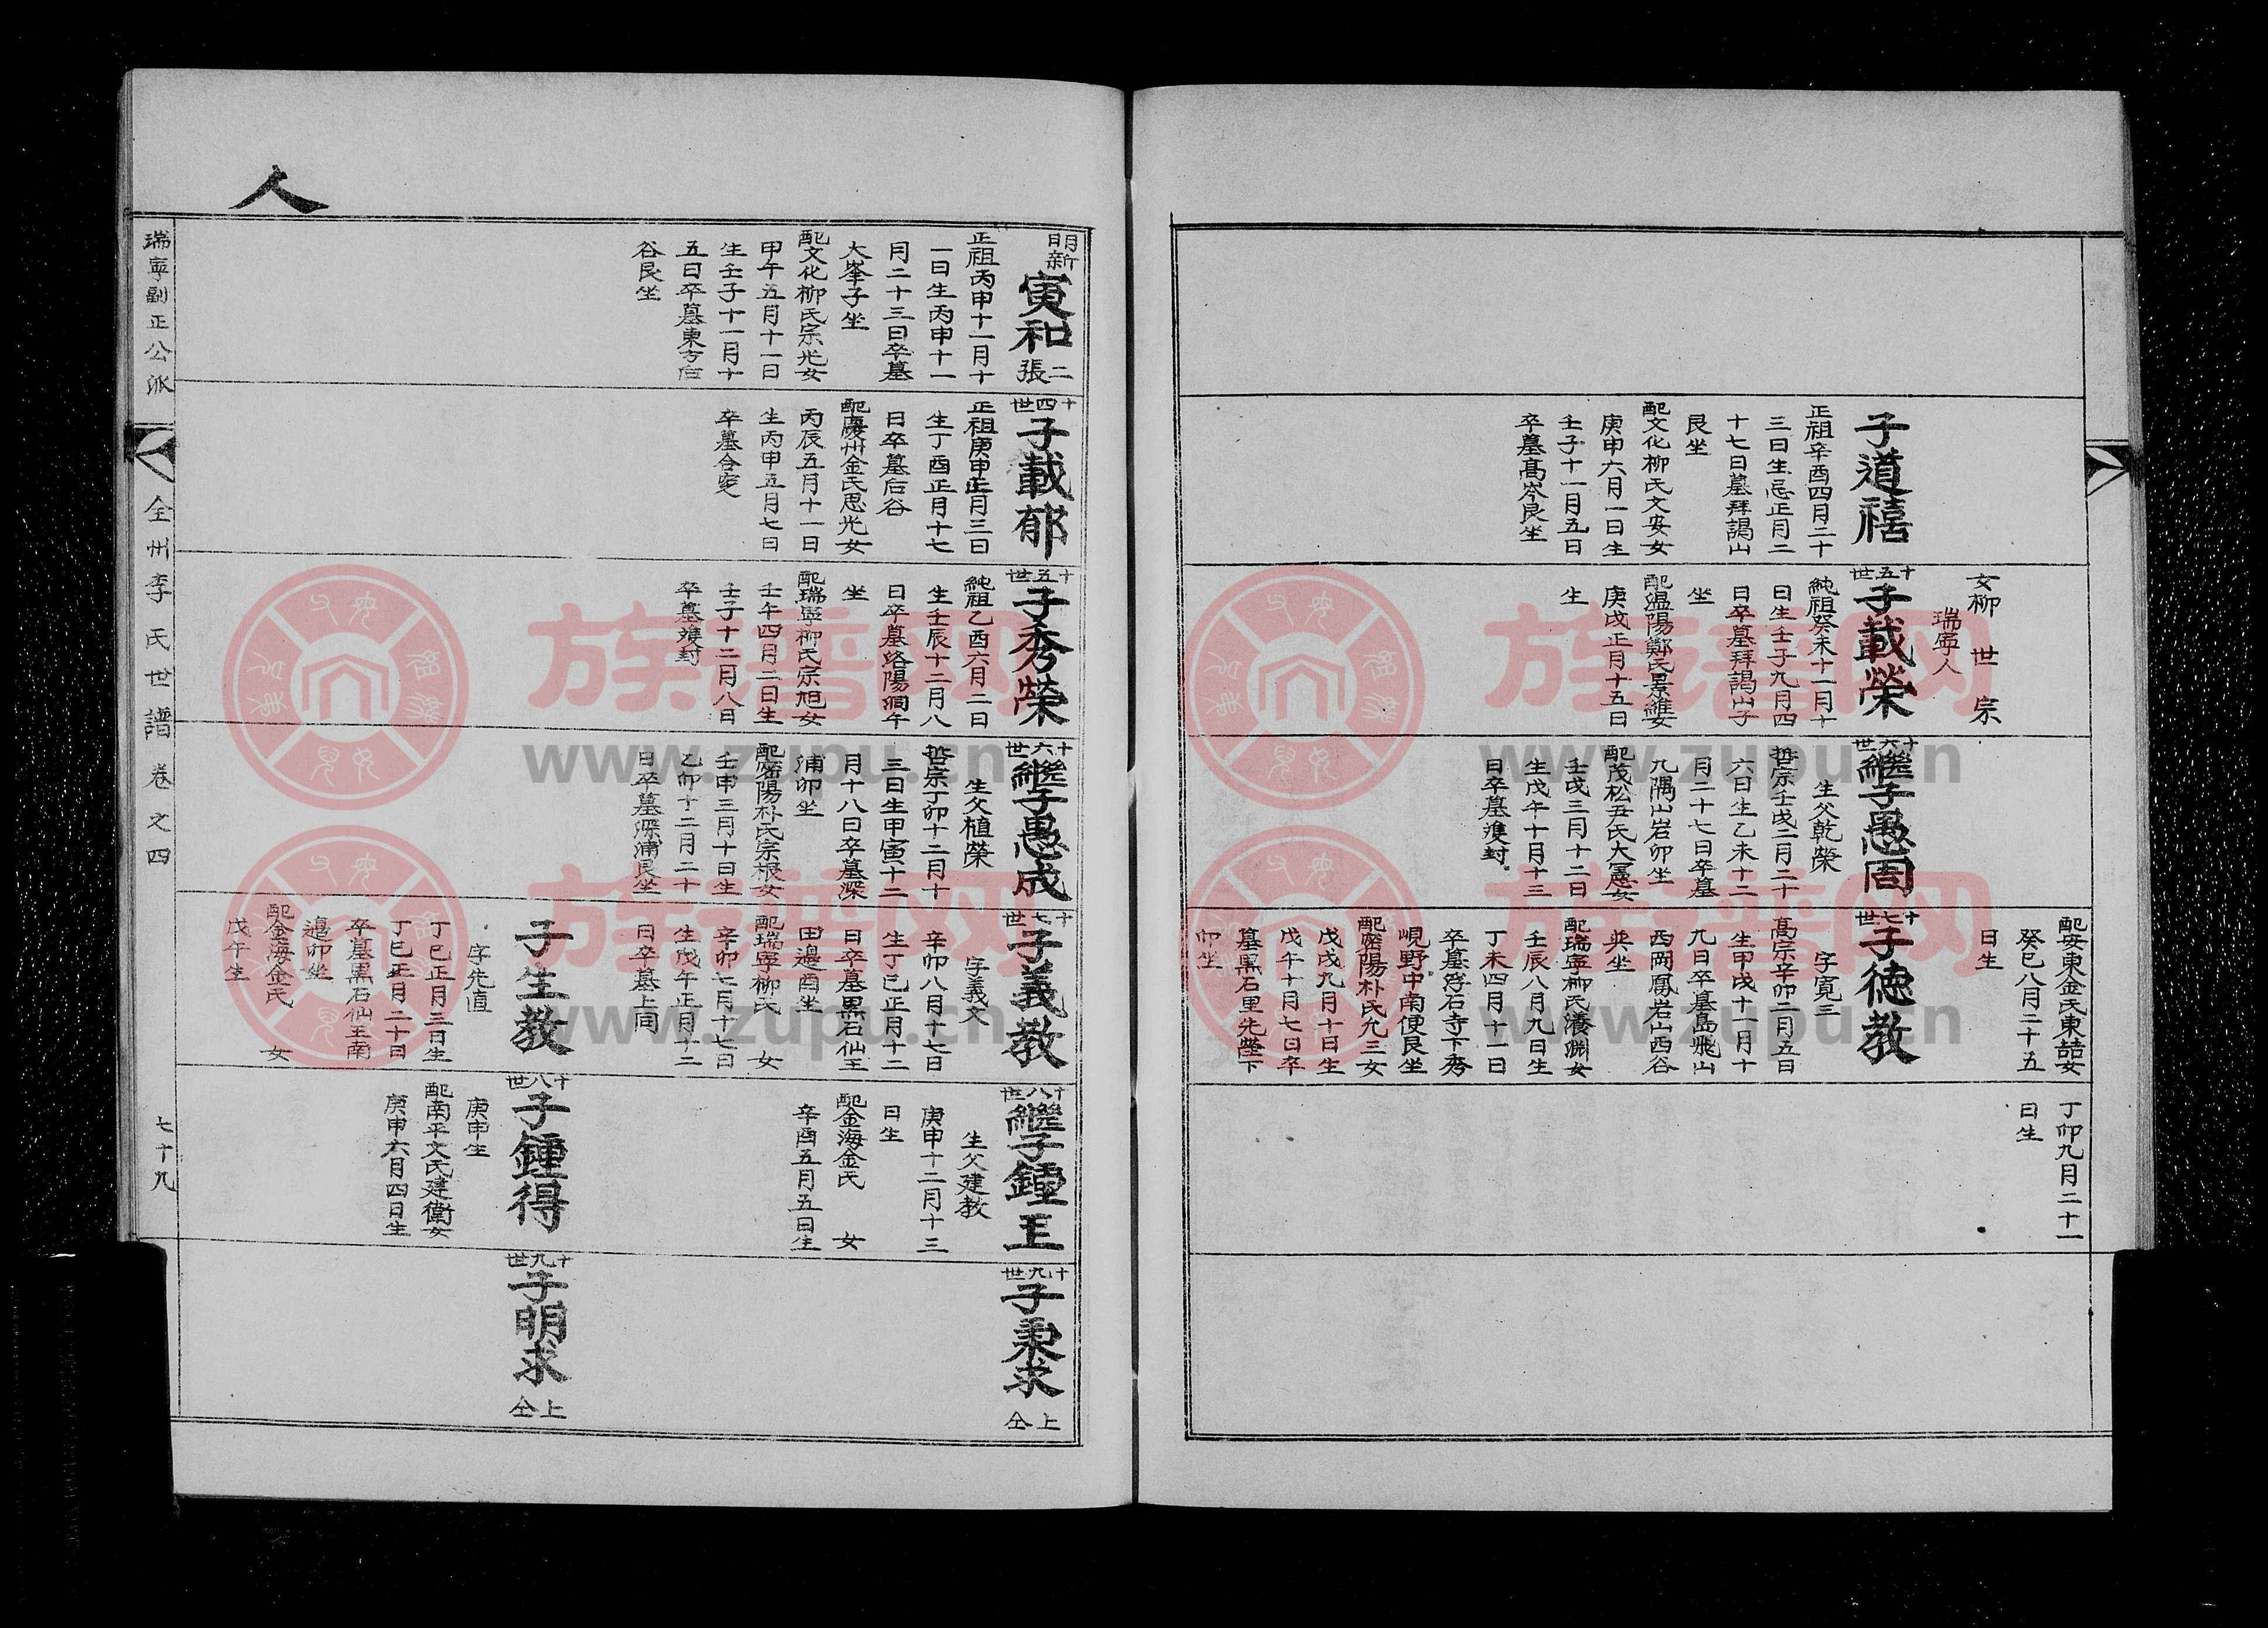 配安東金氏東喆女
癸巳八月二十五
日生
丁卯九月二十一
日生
女柳世宗
瑞寧人
子道禧
正祖辛酉四月二十
三日生忌正月二
十七日墓拜謁山
艮坐
配文化柳氏文安女
庚申六月一日生
壬子十一月五日
卒墓高岑艮坐
十五世
子載榮
純祖癸未十一月十
日生壬子九月四
日卒墓拜謁山子
坐
配温陽鄭氏景維女
庚戌正月十五日
生
十六世
繼子愚周
生父乾榮
哲宗壬戌二月二十
六日生乙未十二
月二十七日卒墓
九隅山岩卯坐
配茂松尹氏大憲女
壬戌三月十二日
生戊午十月十三
日卒墓雙封
十七世
子德教
字寬三
高宗辛卯二月五日
生甲戌十一月十
九日卒墓島飛山
西岡鳳岩山西谷
巽坐
配瑞寧柳氏濬淵女
壬辰八月九日生
丁未四月十一日
卒墓浮石寺下秀
峴野中南便艮坐
配密陽朴氏允三女
戊戌九月十日生
戊午十月七日卒
墓黑石里先塋下
卯坐
人
明新
寅和
二張
正祖丙申十一月十
一日生丙申十一
月二十三日卒墓
大峯子坐
配文化柳氏宗光女
甲午五月十一日
生壬子十一月十
五日卒墓東方后
谷艮坐
十四世
子載郁
正祖庚申正月三日
生丁酉正月十七
日卒墓后谷
配慶州金氏思光女
丙辰五月十一日
生丙申五月七日
卒墓合窆
十五世
子秀榮
純祖乙酉六月二日
生壬辰十二月八
日卒墓路陽洞午
坐
配瑞寧柳氏宗旭女
壬午四月二日生
壬子十二月八日
卒墓雙封
十六世
繼子愚成
生父植榮
哲宗丁卯十二月十
三日生甲寅十二
月十八日卒墓深
浦卯坐
配密陽朴氏宗根女
壬申三月十日生
乙卯十二月二十
日卒墓深浦艮坐
十七世
子義教
字義文
辛卯八月十七日
生丁巳正月十二
日卒墓黑石仙王
田邉酉坐
配瑞寧柳氏 女
辛卯七月十七日
生戊午正月十二
日卒墓上同
子生教
字先直
丁巳正月三日生
丁巳正月二十日
卒墓黑石仙王南
邉卯坐
配金海金氏 女
戊午生
十八世
繼子鍾王
生父建教
庚申十二月十三
日生
配金海金氏 女
辛酉五月五日生
十八世
子鍾得
庚申生
配南平文氏建衛女
庚申六月四日生
十九世
子秉求
上仝
十九世
子明求
上仝
瑞寧副正公派
全州李氏世譜 卷之四
七十九
族谱网
www.zupu.cn
族谱网
www.zupu.cn
族谱网
www.zupu.cn
族谱网
www.zupu.cn